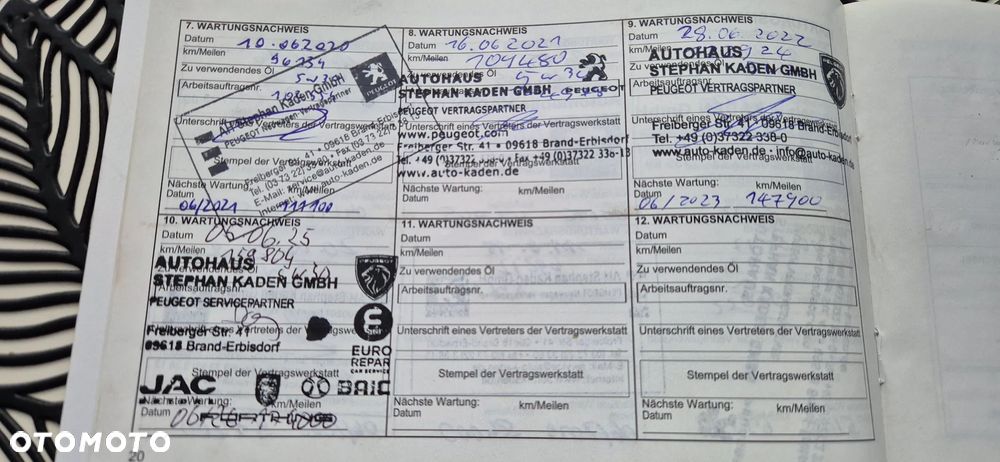 7. WARTUNGSNACHWEIS
Datum 10.06.2020
km/Meilen
96734
Zu verwendendes Öl
Arbeitsauftragsnr.
AH Stephan Kaden GmbH
PEUGEOT Neuwagen-Vertragspartner
PEUGEOT
Freiberger Str. 41 • 09618 Brand-Erbisdorf
Unterschrift eines Vertreters der Vertragswerkstatt
Stempel der Vertragswerkstatt
Nächste Wartung:
km/Meilen
Datum
06/2021 111100
8. WARTUNGSNACHWEIS
Datum 16.06.2021
km/Meilen 104480
Zu verwendendes Öl 5w30
AUTOHAUS
STEPHAN KADEN GMBH
PEUGEOT
Arbeitsauftragsnr.
PEUGEOT VERTRAGSPARTNER
Unterschrift eines Vertreters der Vertragswerkstatt
www.peugeot.com
Freiberger Str. 41 • 09618 Brand-Erbisdorf
Stempel der Vertragswerkstatt
www.auto-kaden.de
Nächste Wartung: km/Meilen
Datum
9. WARTUNGSNACHWEIS
Datum 28.06.2022
km/Meilen
AUTOHAUS
STEPHAN KADEN GMBH
PEUGEOT VERTRAGSPARTNER
Freiberger Str. 41 • 09618 Brand-Erbisdorf
Tel. +49 (0)37322 338-0
www.auto-kaden.de • info@auto-kaden.de
Stempel der Vertragswerkstatt
Nächste Wartung: km/Meilen
Datum
06/2023 147900
10. WARTUNGSNACHWEIS
Datum 06.06.25
km/Meilen 158804
AUTOHAUS
Zu verwendendes Öl
STEPHAN KADEN GMBH
PEUGEOT
Arbeitsauftragsnr.
PEUGEOT SERVICEPARTNER
Freiberger Str. 41
Unterschrift eines Vertreters der Vertragswerkstatt
09618 Brand-Erbisdorf
EURO
REPAR
CAR SERVICE
Stempel der Vertragswerkstatt
JAC BAIC
Nächste Wartung: km/Meilen
Datum
11. WARTUNGSNACHWEIS
Datum
km/Meilen
Zu verwendendes Öl
Arbeitsauftragsnr.
Unterschrift eines Vertreters der Vertragswerkstatt
Stempel der Vertragswerkstatt
Nächste Wartung: km/Meilen
Datum
12. WARTUNGSNACHWEIS
Datum
km/Meilen
Zu verwendendes Öl
Arbeitsauftragsnr.
Unterschrift eines Vertreters der Vertragswerkstatt
Stempel der Vertragswerkstatt
Nächste Wartung: km/Meilen
Datum
20
OTOMOTO